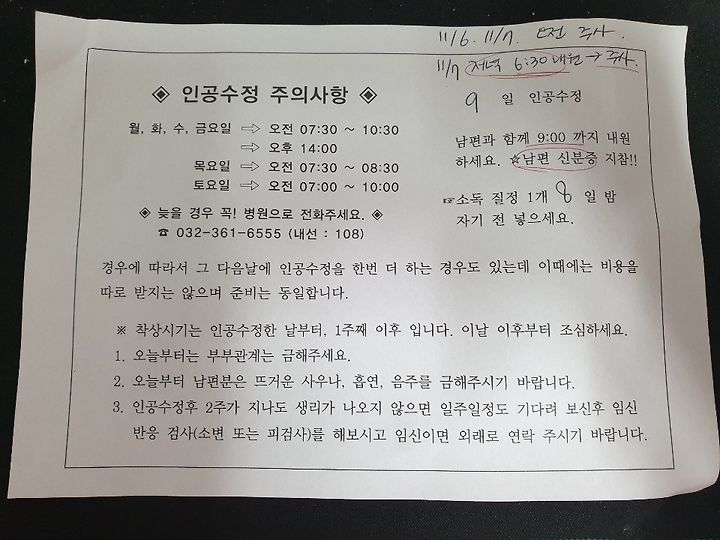 11/6. 11/7. 오전 주사.
11/7 저녁 6:30 내원 → 주사.
◈ 인공수정 주의사항 ◈
월, 화, 수, 금요일 ⇨ 오전 07:30 ~ 10:30
⇨ 오후 14:00
목요일 ⇨ 오전 07:30 ~ 08:30
토요일 ⇨ 오전 07:00 ~ 10:00
◈ 늦을 경우 꼭! 병원으로 전화주세요. ◈
☎ 032-361-6555 (내선 : 108)
9 일 인공수정
남편과 함께 9:00 까지 내원
하세요. ☆남편 신분증 지참!!
☞소독 질정 1개 8 일 밤
자기 전 넣으세요.
경우에 따라서 그 다음날에 인공수정을 한번 더 하는 경우도 있는데 이때에는 비용을
따로 받지는 않으며 준비는 동일합니다.
※ 착상시기는 인공수정한 날부터, 1주째 이후 입니다. 이날 이후부터 조심하세요.
1. 오늘부터는 부부관계는 금해주세요.
2. 오늘부터 남편분은 뜨거운 사우나, 흡연, 음주를 금해주시기 바랍니다.
3. 인공수정후 2주가 지나도 생리가 나오지 않으면 일주일정도 기다려 보신후 임신
반응 검사(소변 또는 피검사)를 해보시고 임신이면 외래로 연락 주시기 바랍니다.